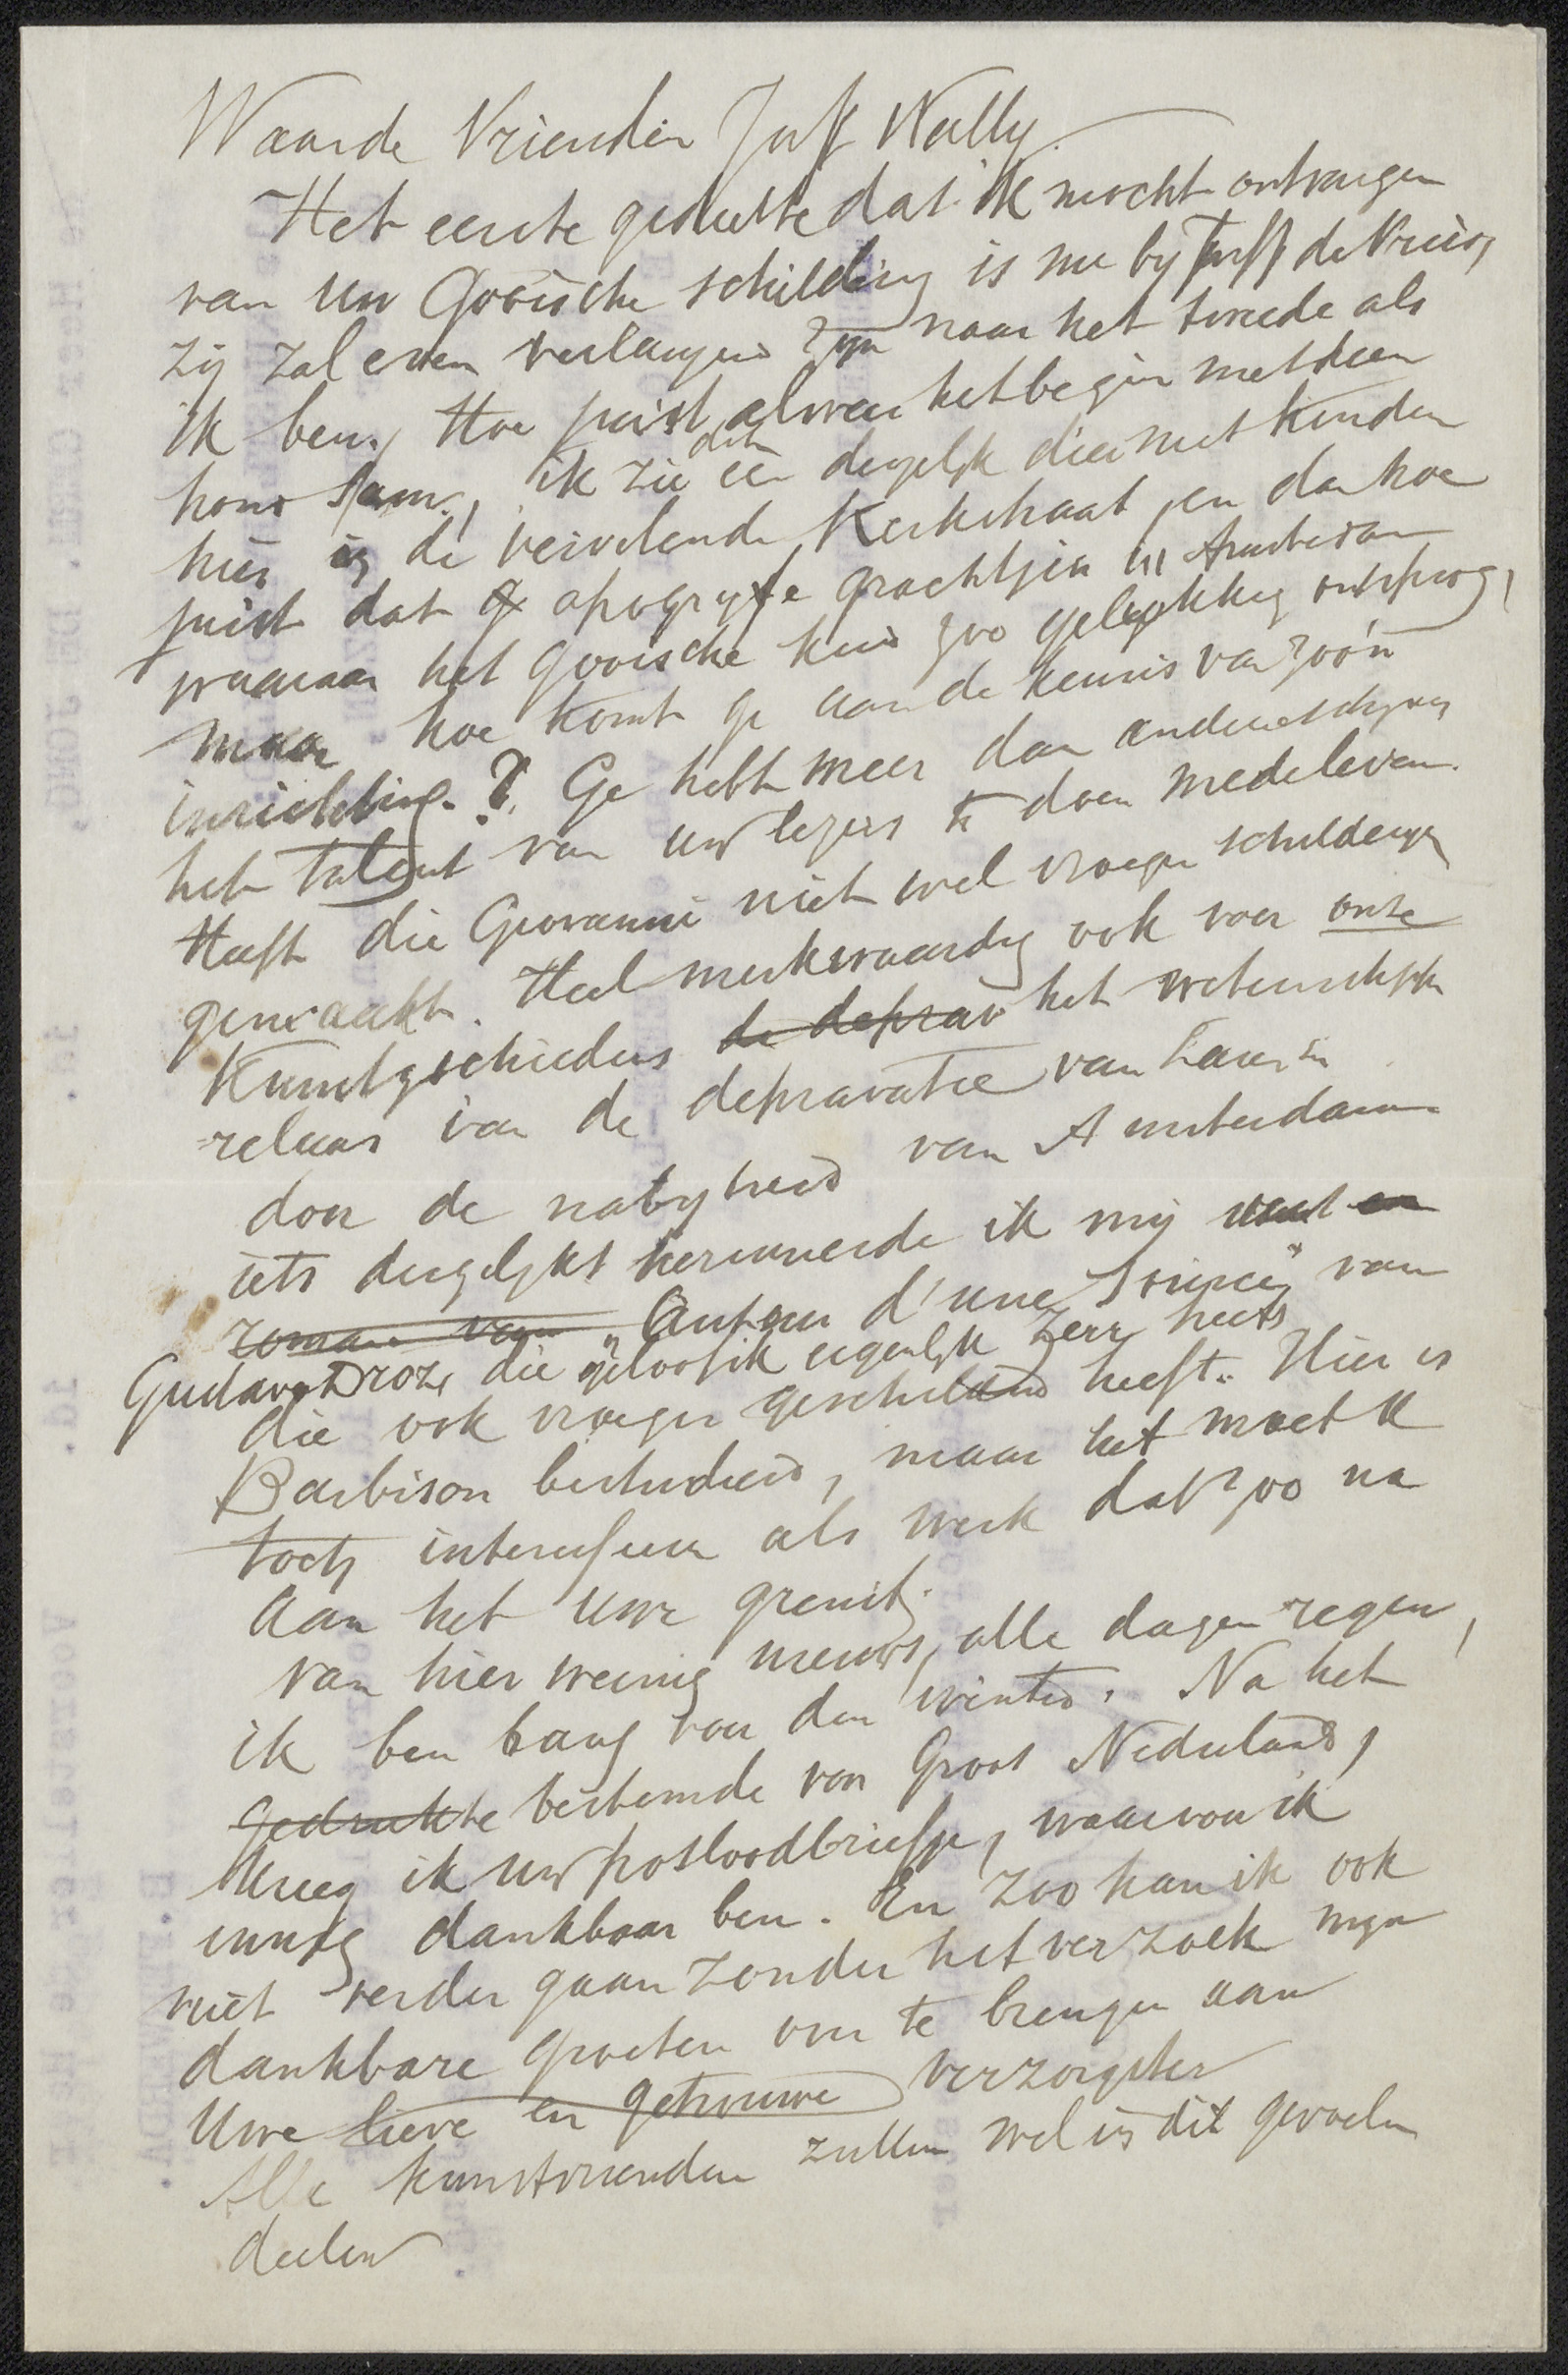 Waarde Vriendin Juff Nelly.
Het eerste gedeelte dat ik mocht ontvangen
van uw Gooische schildering is nu by Juff de Vries,
zij zal even verlangend zyn naar het tweede als
ik ben. Hoe juist alweer het begin met dien
hond Sam, ik zie dien een dergelyk dier met kinderen
hier in de Kerkstraat, en dan hoe
juist dat apogryfe grachtjen in Amsterdam
waaraan het Gooische kind zoo gelukkig ontsprong,
maar hoe komt ge aan de kennis van zoo'n
inrichting.? Ge hebt meer dan andere schryvers
het talent van uw lezers te doen medeleven.
Heeft die Giovanni niet wel vroeger schilderyen
gemaakt. Heel merkwaardig ook voor onze
Kunstgeschiedenis de deprav het wetenschappelijk
relaas van de depravatie van Laren
door de nabyheid van Amsterdam
iets dergelyks herinnerde ik mij uit een
roman van „Autour d'une Source" van
Gustave Droze die geloof ik eigenlyk Zerr heet
die ook vroeger geschilderd heeft. Hier is
Barbison bestudeerd, maar het moet U
toch interesseeren als werk dat zoo na
aan het uwe grenst.
van hier weinig nieuws, alle dagen regen,
ik ben bang voor den winter. Na het
gedrukte bestemde van Groot Nederland,
kreeg ik uw potloodbriefje, waarvoor ik
innig dankbaar ben. En zoo kan ik ook
niet verder gaan zonder het verzoek mijn
dankbare groeten over te brengen aan
Uwe lieve en getrouwe verzorgster
Alle kunstvrienden zullen wel in dit gevoelen
deelen